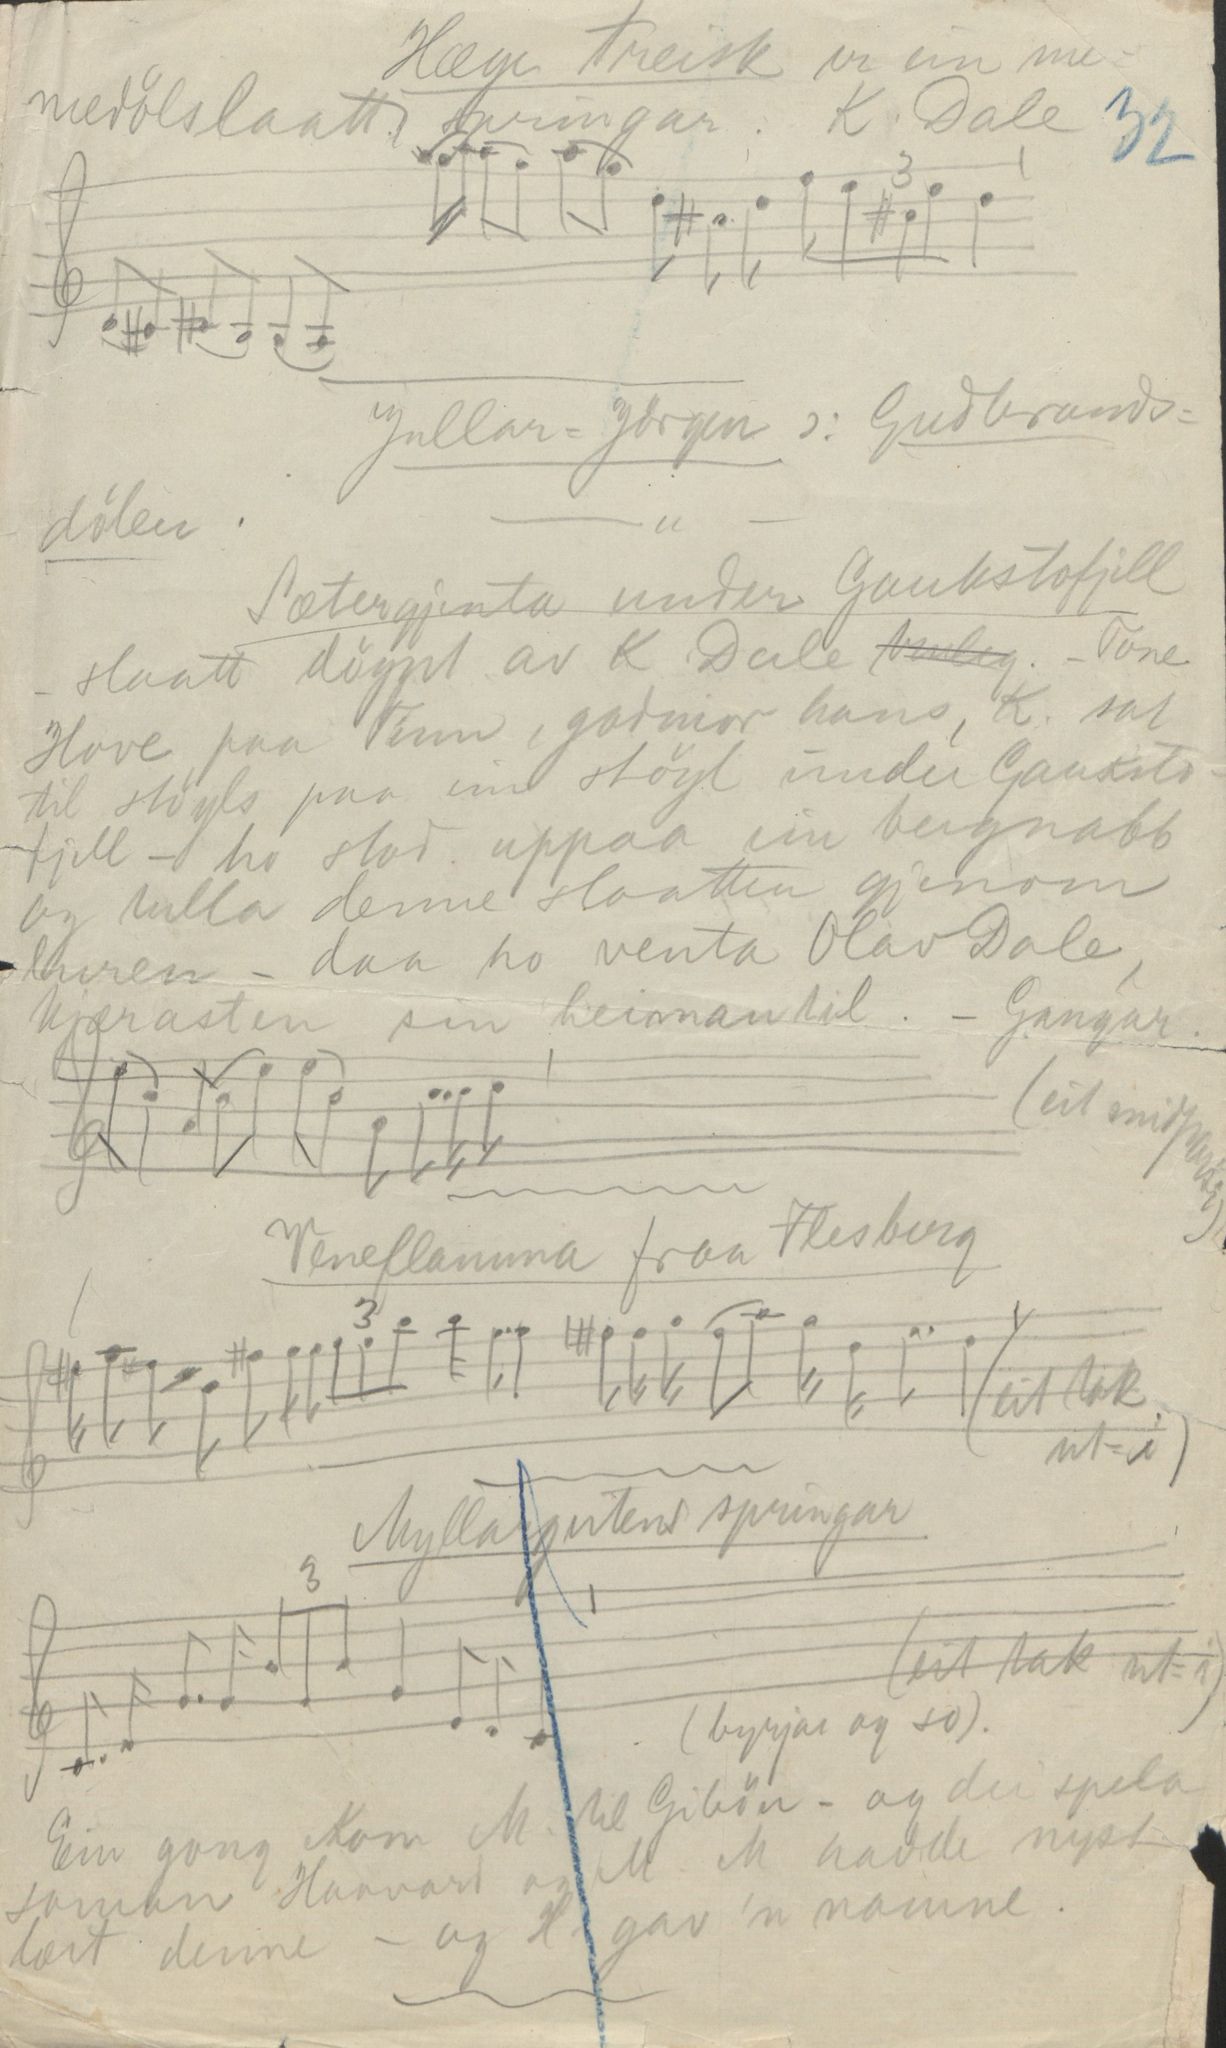 Hæge Treisk er ein me=
medölslaatt, springar. K. Dale
32
3
Jullar=Jörgen ɔ: Gudbrands=
dölen.
Sætergjenta under Gaukstofjell
- slaatt döypt av K Dale. - Tone
Hove paa Tinn, godmor hans, K. sat
til støyls paa ein støyl under Gauksto-
fjell - ho stod uppaa ein bergnabb
og tulla denne slaatten gjenom
luren - daa ho venta Olav Dale,
kjærasten sin heimantil. - Gangar.
(eit
Veneflamma fraa Flesberg
3
(eit tak
ut=i)
Myllargutens springar
3
(eit tak ut=i)
(byrjar og so).
Ein gong kom M. til Giböen - og dei spela
saman Haavard og M. M hadde nyst
lært denne - og H. gav 'n namne.